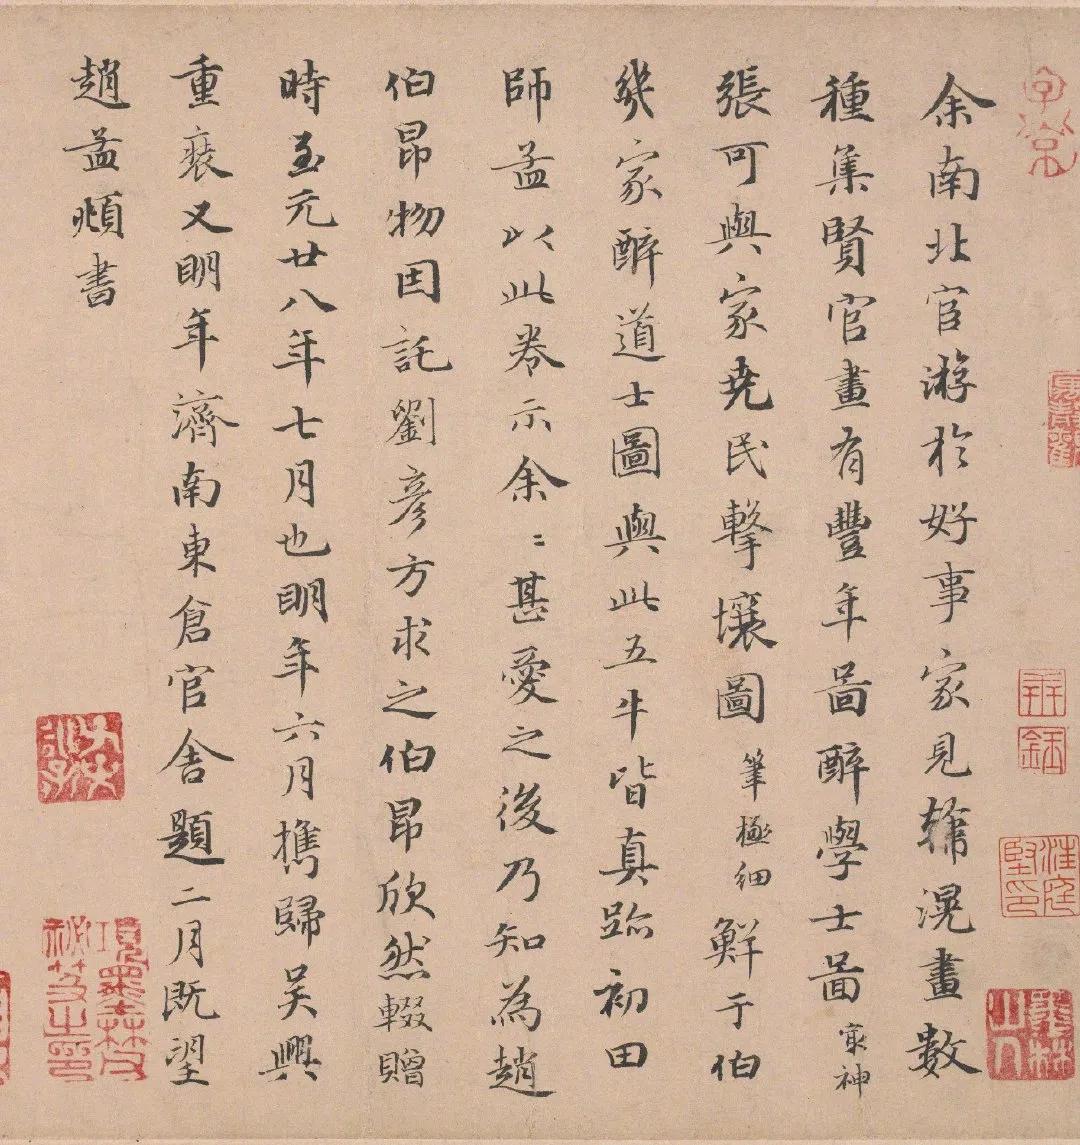 余南北官游於好事家見韓滉畫數
種集賢官畫有豐年啚醉學士啚㝡神
張可與家堯民擊壤圖筆極細鮮于伯
幾家醉道士圖與此五牛皆真跡初田
師孟以此卷示余〻甚愛之後乃知為趙
伯昂物因託劉彥方求之伯昂欣然輟贈
時至元廿八年七月也明年六月攜歸吳興
重裝又明年濟南東倉官舍題二月既望
趙孟頫書
子京
墨林山人
項墨林父秘笈之印